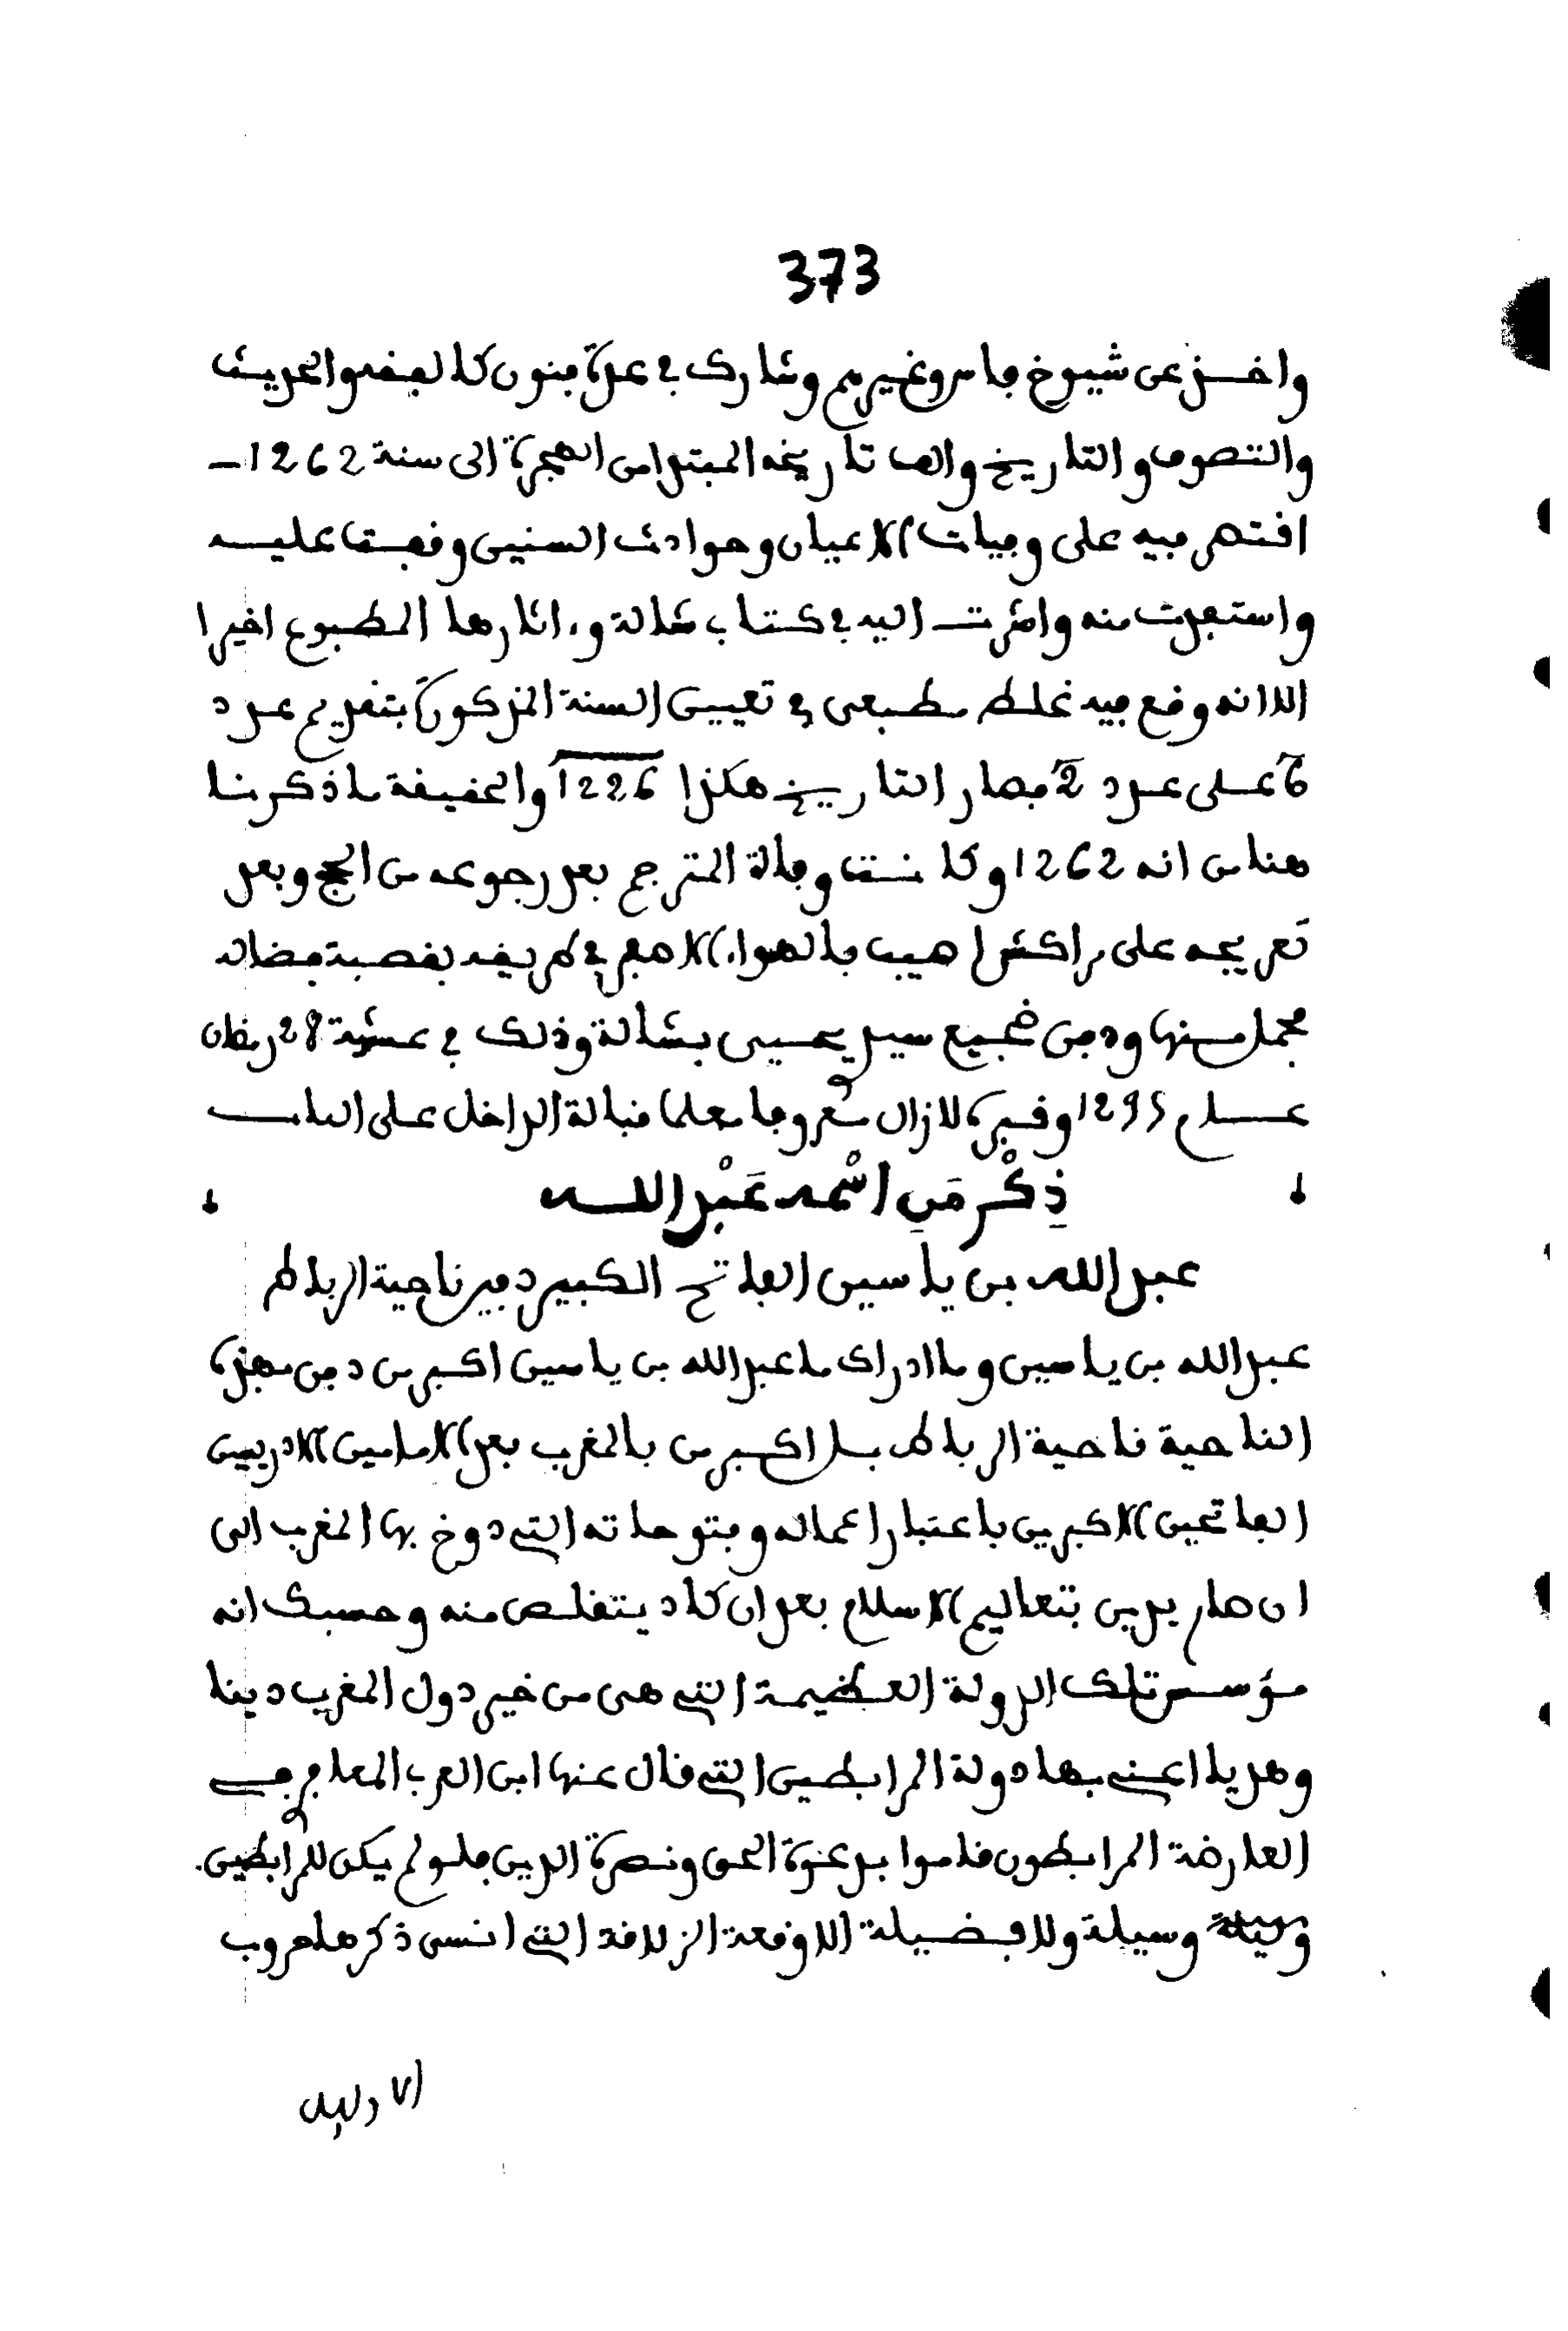 373
واخذ عن شيوخ فاس وغيرهم وشارك في عدة فنون كالفقه والحديث
والتصوف والتاريخ والف تاريخه المبتدا من الهجرة الى سنة 1262 –
اقتصر فيه على وفيات الاعيان وحوادث السنين وقفت عليه
واستفدت منه واشرت اليه في كتاب شالة وءاثارها المطبوع اخيرا
الا انه وقع فيه غلط مطبعي في تعيين السنة المذكورة بتقديم عدد
6 على عدد 2 فصار التاريخ هكذا 1226 والحقيقة ما ذكرنا
هنا من انه 1262 وكانت وفاة المترجم بعد رجوعه من الحج وبعد
تعريجه على مراكش اصيب بالهواء الاصفر في طريقه بقصبة فضالة
فحمل منها ودفن ضجيع سيد يحيى بشالة وذلك في عشية 28 رمضان
عام 1295 وقبره لازال معروفا معلما قبالة الداخل على الباب
ذِكْر مَنِ اسْمه عَبْد الله
عبد الله بن ياسين الفاتح الكبير دفين ناحية الرباط
عبد الله بن ياسين وما ادراك ما عبد الله بن ياسين اكبر من دفن بهذه
الناحية ناحية الرباط بل اكبر من بالمغرب بعد الامامين الادريسين
الفاتحين الاكبرين باعتبار اعماله وفتوحاته التي دوخ بها المغرب الى
ان صار يدين بتعاليم الاسلام بعد ان كاد يتقلص منه وحسبك انه
مؤسس تلك الدولة العظيمة التي هي من خير دول المغرب دينا
وهديا اعني بها دولة المرابطين التي قال عنها ابن العرب المعافري في
العارضة المرابطون قاموا بدعوة الحق ونصرة الدين فلو لم يكن للمرابطين
وسيلة ولا فضيلة الا وقعة الزلاقة التي انسى ذكرها حروب
الاوليل